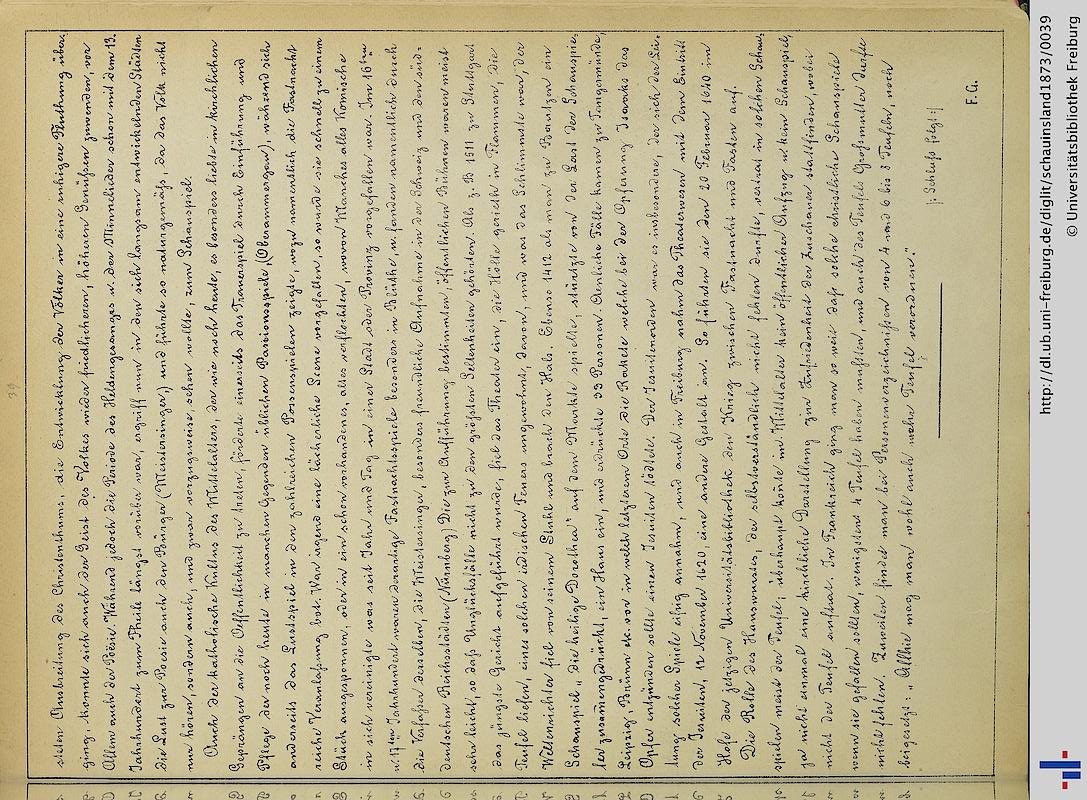 39
sieden Ausbreitung des Christenthums, die Entwicklung der Völker in eine ruhigere Fluthung über-
ging, konnte sich auch der Geist des Volkes wider friedlicheren, höheren Genüßen zuwenden, vor
Allem auch der Poesie. Während jedoch die Periode des Heldengesanges u. der Minnelieder schon mit dem 13.
Jahrhundert zum Theile längst vorüber war, ergriff nun in den sich langsam entwickelnden Städten
die Lust zur Poesie auch den Bürger (Meistersinger) und führte so naturgemäß, da das Volk nicht
nur hören, sondern auch, und zwar vorzugsweise, sehen wollte, zum Schauspiel.
Auch der katholische Kultus des Mittelalters, der wie noch heute, es besonders liebte in kirchlichen
Geprängen an die Oeffentlichkeit zu treten, förderte einerseits das Trauerspiel durch Einführung und
Pflege der noch heute in manchen Gegenden üblichen Passionsspiele, (Oberammergau), während sich
anderseits das Lustspiel in den zahlreichen Possenspielen zeigte, wozu namentlich die Fastnacht
reiche Veranlaßung bot. War irgend eine lächerliche Scene vorgefallen, so wurde sie schnell zu einem
Stück ausgesponnen, oder in ein schon vorhandenes, altes verflochten, wovon Manches alles Komische
in sich vereinigte was seit Jahr und Tag in einer Stadt oder Provinz vorgefallen war. Im 16ten
u. 17ten Jahrhundert waren derartige Fastnachtsspiele besonders in Blüthe, u. fanden namentlich durch
die Verfaßer derselben, die Meistersinger, besonders freundliche Aufnahme in der Schweiz und den süd-
deutschen Reichsstädten (Nürnberg). Die zur Aufführung bestimmten, öffentlichen Bühnen waren meist
sehr leicht, so daß Unglücksfälle nicht zu den größten Seltenheiten gehörten. Als z. B 1511 zu Stuttgart
das jüngste Gericht aufgeführt wurde, fiel das Theater ein, die Hölle gerieth in Flammen, die
Teufel liefen, eines solchen irdischen Feuers ungewohnt, davon, und was das Schlimmste war, der
Weltenrichter fiel von seinem Stuhl und brach den Hals. Ebenso 1412 als man zu Bautzen ein
Schauspiel „die heilige Dorothea“ auf dem Markte spielte, stürzte von der Last der Schauspie-
ler zusammengedrückt, ein Haus ein, und erdrückte 33 Personen. Aenliche Fälle kamen zu Pengemünde,
Leipzig, Brünn etc. vor in welch letzterem Orte die Rackete welche bei der Opferung Isaacks das
Opfer entzünden sollte einen Jesuiten tödtete. Der Jesuitenorden war es insbesondere, der sich der Lei-
tung solcher Spiele eifrig annahm, und auch in Freiburg nahm das Theaterwesen mit dem Eintritt
der Jesuiten, 12 November 1620, eine andere Gestalt an. So führten sie den 20 Februar 1640 im
Hofe der jetzigen Universitätsbibliothek den Krieg zwischen Fastnacht und Fasten auf.
Die Rolle des Hanswurstes, der selbstverständlich nicht fehlen durfte, vertrat in solchen Schau-
spielen meist der Teufel; überhaupt konnte im Mittelalter kein öffentlicher Aufzug u kein Schauspiel,
ja nicht einmal eine kirchliche Darstellung zur Zufriedenheit der Zuschauer stattfinden, wobei
nicht der Teufel auftrat. In Frankreich ging man so weit daß solche christliche Schauspiele
wenn sie gefallen sollten, wenigstens 4 Teufel haben mußten, und auch des Teufels Großmutter durfte
nicht fehlen. Zuweilen findet man bei Personenverzeichnißen von 4 und 6 bis 8 Teufeln, noch
beigesetzt: „Allhie mag man wohl auch mehr Teufel verordnen“.
|: Schluß folgt :|
F. G.
http://dl.ub.uni-freiburg.de/diglit/schauinsland1873/0039
© Universitätsbibliothek Freiburg